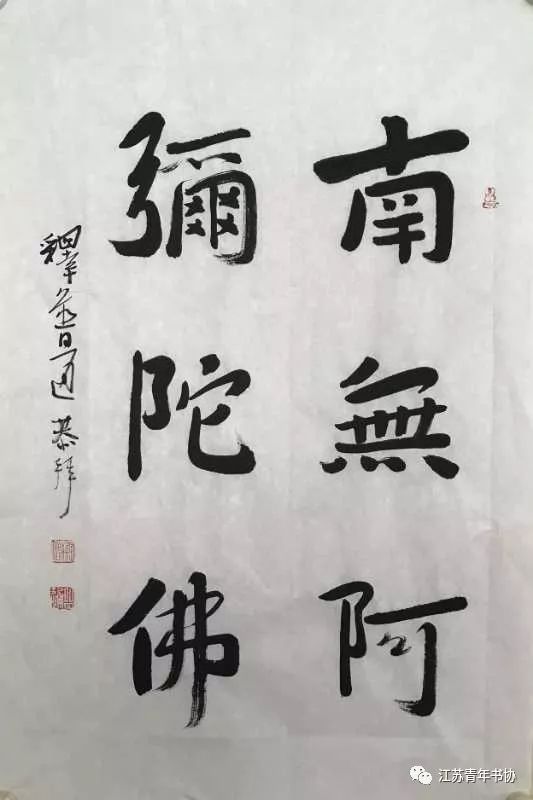 南無阿
彌陀佛
釋普通恭拜
江苏青年书协